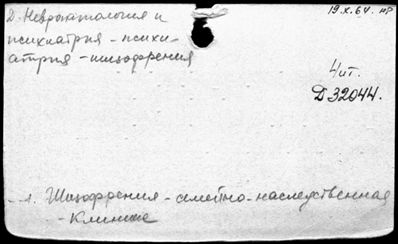 Д. Невропатология и
19.X.64. нр
психиатрия - психи-
атрия - шизофрения
Чит.
Д 32044.
1. Шизофрения - семейно-наследственная
- Клинике